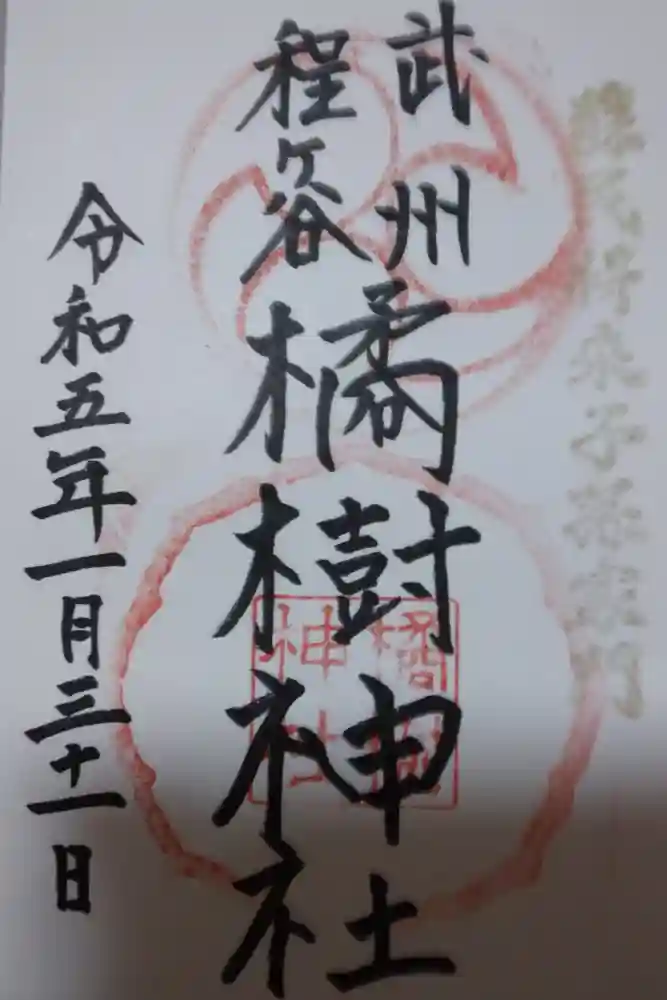 武州
程ヶ谷
橘樹神社
令和五年一月三十一日
橘樹
神社